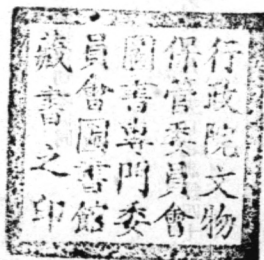 行政院文物
保管委員會
圖書専門委
員會圖書館
藏書之印